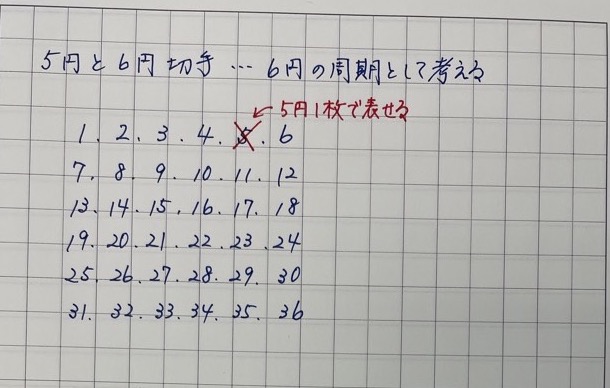 5円と6円切手…6円の周期として考える
←5円1枚で表せる
1. 2. 3. 4. 5. 6
7. 8. 9. 10. 11. 12
13. 14. 15. 16. 17. 18
19. 20. 21. 22. 23. 24
25. 26. 27. 28. 29. 30
31. 32. 33. 34. 35. 36